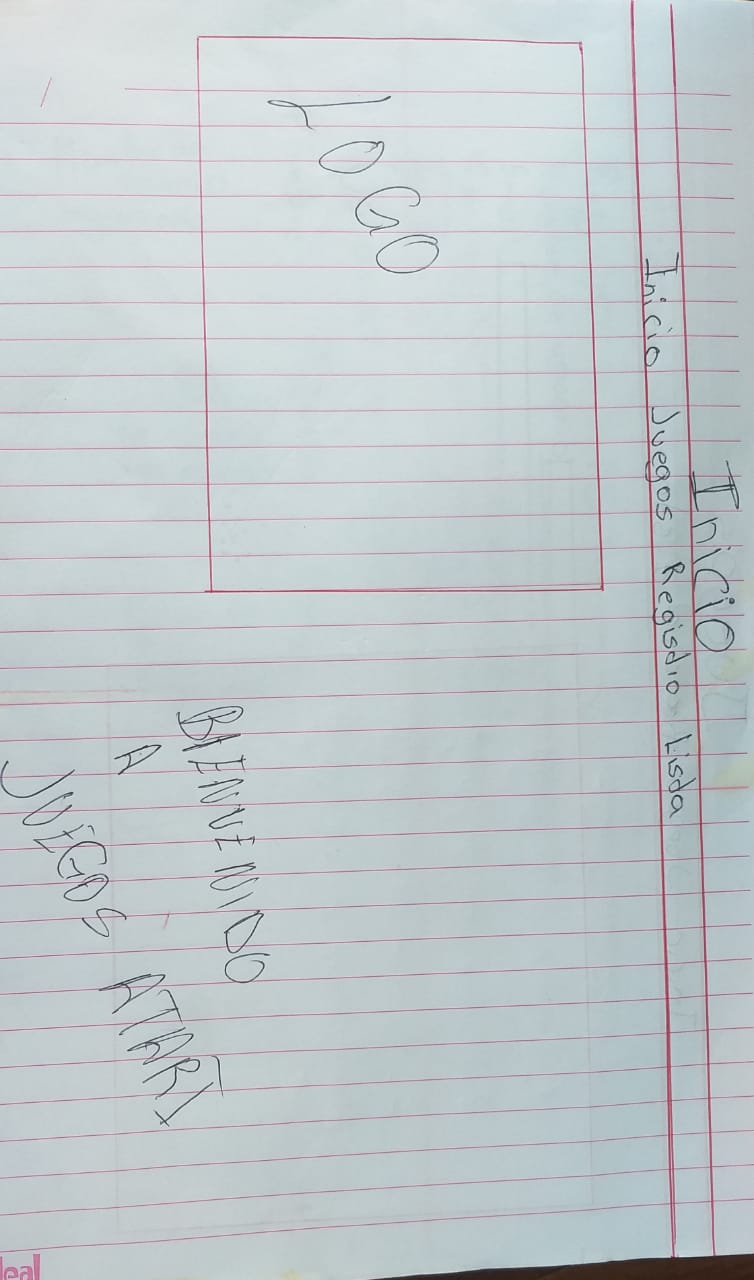 Inicio
Inicio Juegos Regisdio Lisda
LOGO
BIENVENIDO
A
JUEGOS ATARI
deal